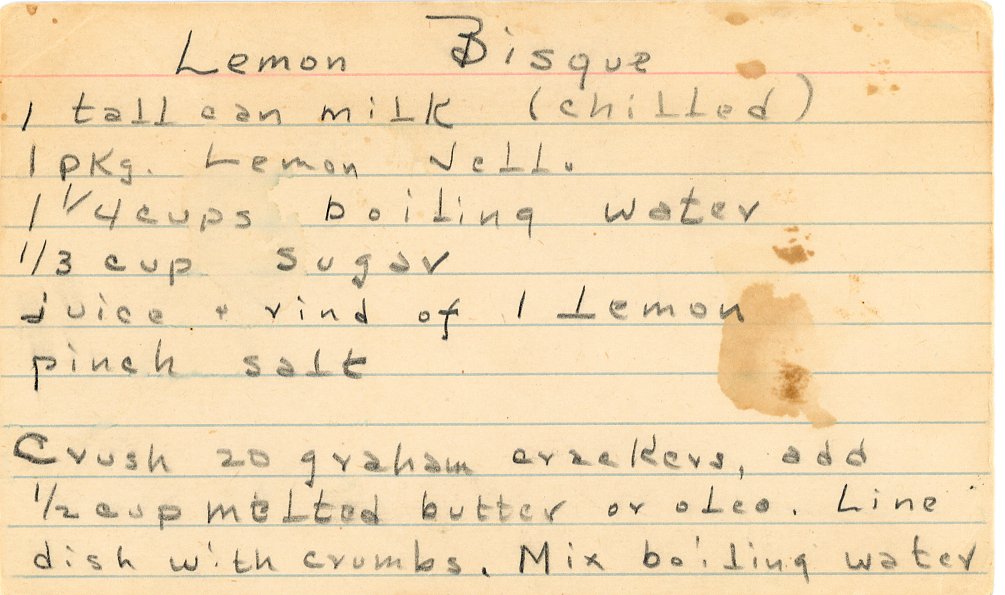 Lemon Bisque
1 tall can milk (chilled)
1 pkg. Lemon Jell.
1 1/4 cups boiling water
1/3 cup sugar
juice + rind of 1 Lemon
pinch salt
Crush 20 graham crackers, add
1/2 cup melted butter or oleo. Line
dish with crumbs. Mix boiling water